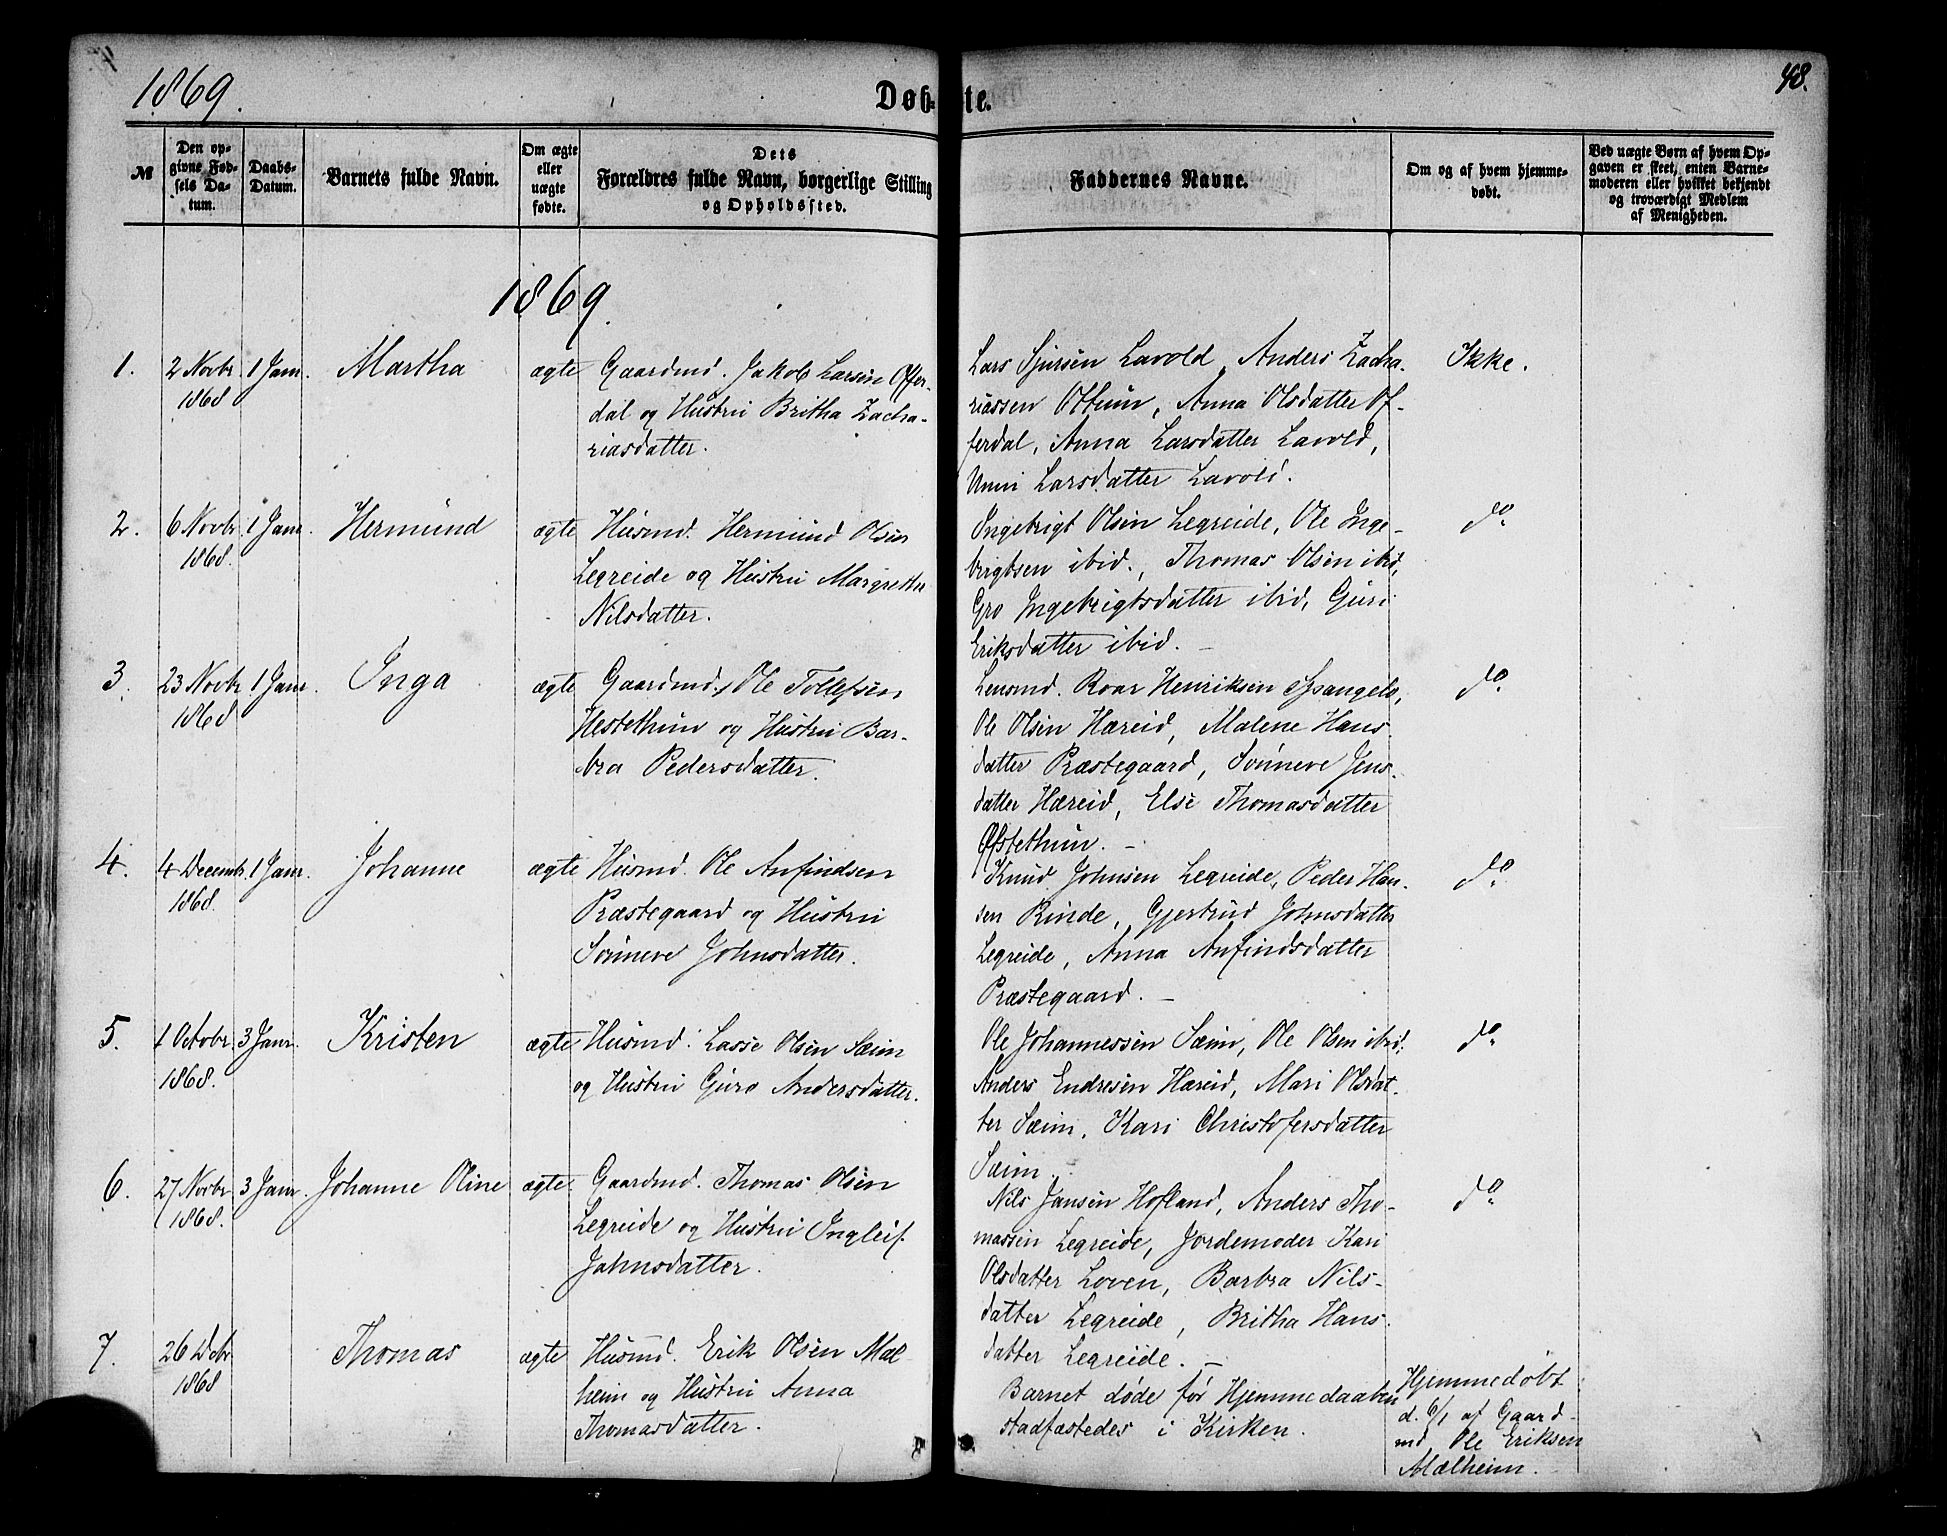 1869.
Døb-
te.
48.
№
Den op-
givne Fød-
sels Da-
tum.
Daabs-
Datum.
Barnets fulde Navn.
Om ægte
eller
uægte
fødte.
Dets
Forældres fulde Navn, borgerlige Stilling
og Opholdssted.
Faddernes Navne.
Om og af hvem hjemme-
døbt.
Ved uægte Børn af hvem Op-
gaven er skeet, enten Barne-
moderen eller hvilket bekjendt
og troværdigt Medlem
af Menigheden.
1869.
1.
2 Novbr
1868
1 Janr.
Martha
ægte
Gaardmd. Jakob Larsen Offer-
dal og Hustru Britha Zacha-
riasdatter.
Lars Sjursen Lavold, Anders Zacha-
riassen Ottum, Anna Olsdatter Of-
ferdal, Anna Larsdatter Lavold,
Unni Larsdatter Lavold.
Ikke.
2.
6 Novbr
1868.
1 Janr.
Hermund
ægte
Husmd. Hermund Olsen
Legreide og Hustru Margretha
Nilsdatter.
Ingebrigt Olsen Legreide, Ole Inge-
brigtsen ibid., Thomas Olsen ibid,
Gro Ingebrigtsdatter ibid, Guri
Eriksdatter ibid. —
do
3.
23 Novbr
1868
1 Janr.
Inga
ægte
Gaardmd. Ole Tollefsen
Hestethun og Hustru Bar-
bra Pedersdatter.
Lensmd. Roar Henriksen Spangelo,
Ole Olsen Hæreid, Malene Hans-
datter Præstegaard, Sønneve Jens-
datter Hæreid, Else Thomasdatter
Øfstethun. —
do
4.
4 Decembr
1868.
1 Janr.
Johanne
ægte
Husmd. Ole Anfindsen
Præstegaard og Hustru
Sønneve Johnsdatter.
Knud Johnsen Legreide, Peder Han-
sen Rinde, Gjertrud Johnsdatter
Legreide, Anna Anfindsdatter
Præstegaard. —
do
5.
1 Octobr.
1868.
3 Janr.
Kristen
ægte
Husmd. Lasse Olsen Sæim
og Hustru Guro Andersdatter.
Ole Johannessen Sæim, Ole Olsen ibid,
Anders Endresen Hæreid, Mari Olsdat-
ter Sæim, Kari Christofersdatter
Sæim.
do
6.
27 Novbr
1868.
3 Janr.
Johanne Oline
ægte.
Gaardmd. Thomas Olsen
Legreide og Hustru Ingleif
Johnsdatter.
Nils Jansen Hofland, Anders Tho-
massen Legreide, Jordemoder Kari
Olsdatter Loven, Barbra Nils-
datter Legreide, Britha Hans-
datter Legreide. —
do
7.
26 Debr
1868
Thomas
ægte
Husmd. Erik Olsen Mæl-
heim og Hustru Anna
Thomasdatter.
Barnet døde før Hjemmedaaben
stadfæstedes i Kirken.
Hjemmedøbt
d. 6/1 af Gaard-
md Ole Eriksen
Mælheim.